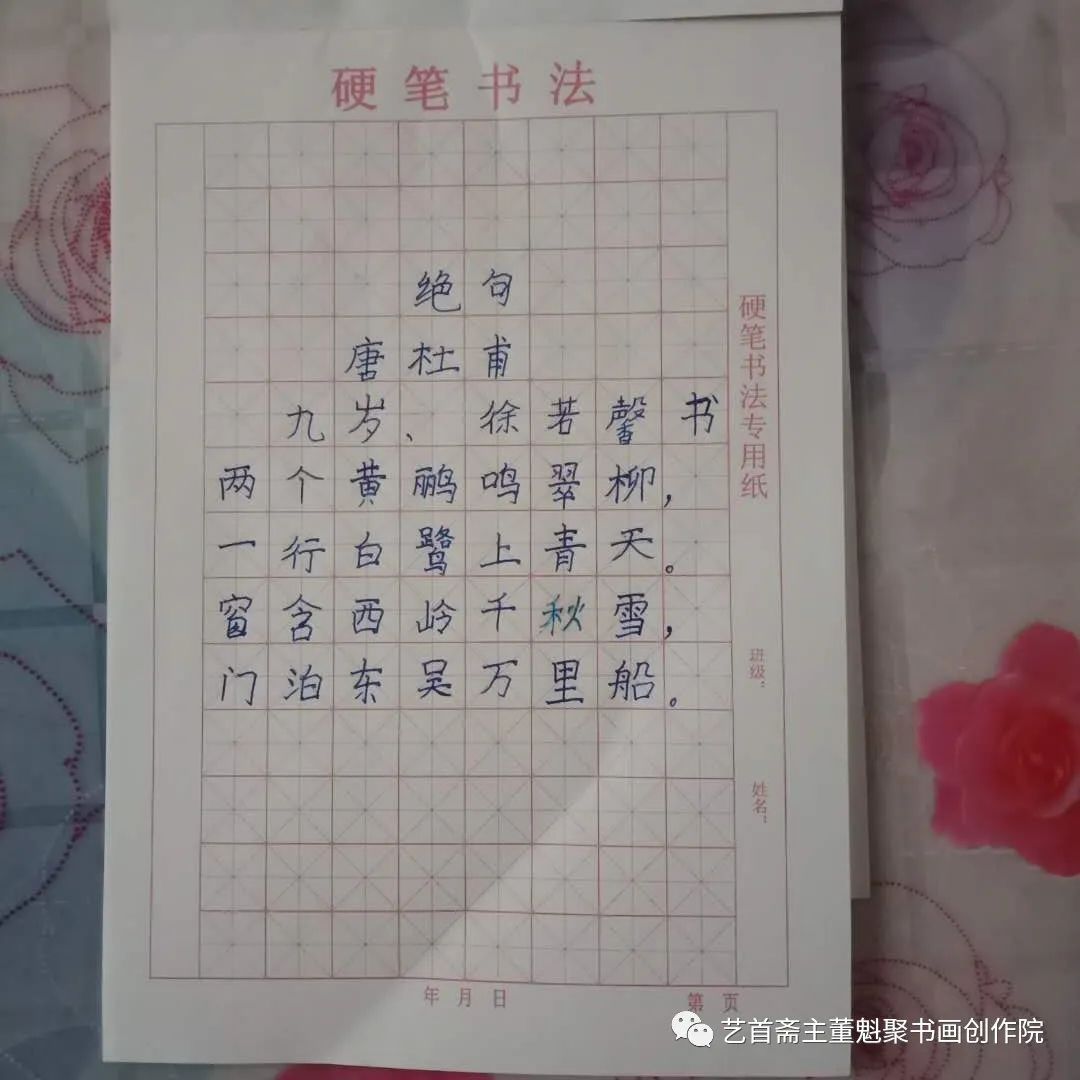 硬笔书法
绝句
唐杜甫
九岁、徐若馨书
两个黄鹂鸣翠柳，
一行白鹭上青天。
窗含西岭千秋雪，
门泊东吴万里船。
硬笔书法专用纸
班级：
姓名：
年月日
第页
艺首斋主董魁聚书画创作院